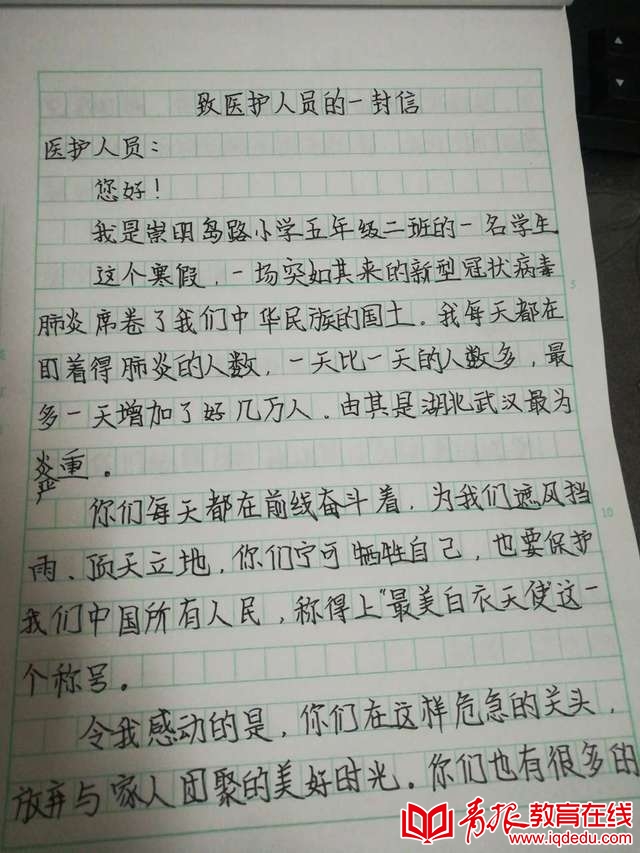 致医护人员的一封信
医护人员：
您好！
我是崇明岛路小学五年级二班的一名学生
这个寒假，一场突如其来的新型冠状病毒
肺炎席卷了我们中华民族的国土。我每天都在
着得肺炎的人数，一天比一天的人数多，最
多一天增加了好几万人。由其是湖北武汉最为
严重。
你们每天都在前线奋斗着，为我们遮风挡
雨、顶天立地，你们宁可牺牲自己，也要保护
我们中国所有人民，称得上"最美白衣天使"这一
个称号。
令我感动的是，你们在这样危急的关头，
放弃与家人团聚的美好时光。你们也有很多的
5
10
青报教育在线
www.iqdedu.com